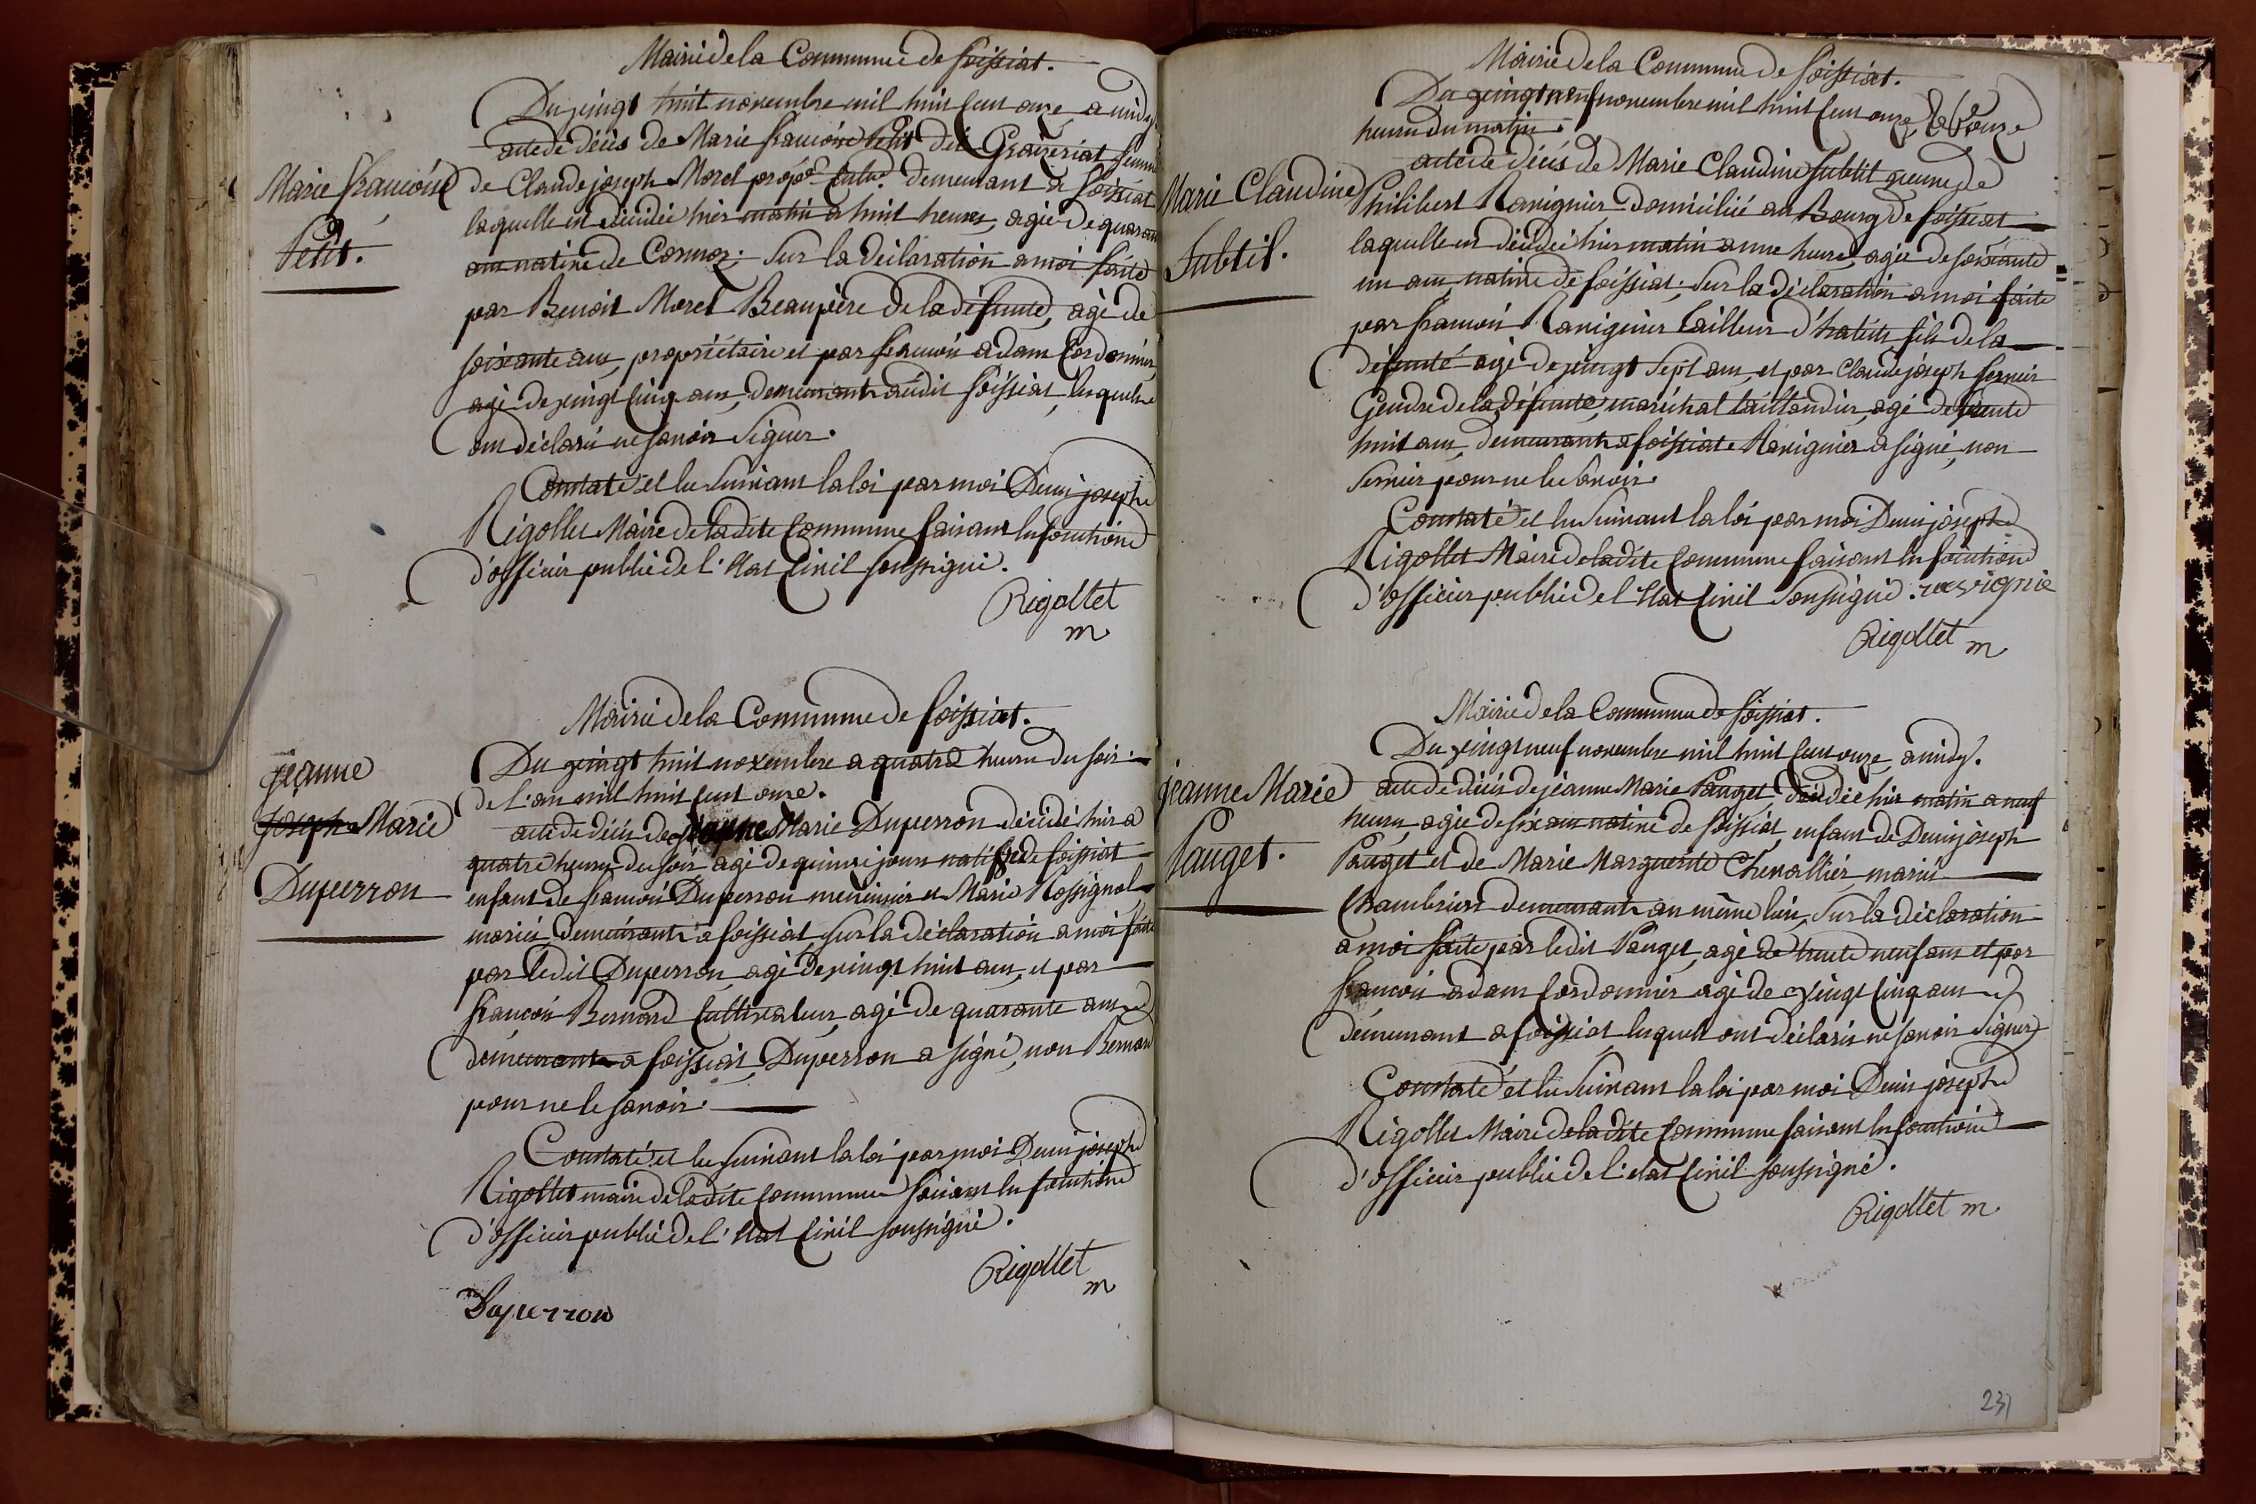 Mairie de la Commune de foissiat.
Du vingt huit novembre mil huit cent onze, a midy
acte de décès de Marie françoise Petit dit Graizeriat femme
Marie françoise
Petit.
de Claude joseph Morel propre. cultr. demeurant a foissiat
laquelle est decédée hier matin a huit heures, agée de quarante
ans native de Cormoz. Sur la déclaration a moi faite
par Benoit Morel Beaupère de la défunte, agé de
soixante ans, propriétaire et par françois adam Cordonnier,
agé de vingt cinq ans, demeurants audit foissiat, lesquels
ont déclaré ne savoir Signer.
Constaté et lu suivant la loi par moi Denis joseph
Rigollet Maire de ladite Commune faisant les fonctions
d'officier public de l'Etat Civil soussigné.
Rigollet
m
Mairie de la Commune de foissiat.
Du vingt huit novembre a quatre heures du soir
de l'an mil huit cent onze.
jeanne
joseph Marie
Duperron
acte de décès de jeanne Marie Duperron décédé hier a
quatre heures du soir agé de quinze jours native de foissiat
enfant de françois Duperron menuisier et Marie Rossignol
mariés, demeurants a foissiat, sur la déclaration a moi faite
par ledit Duperron, agé de vingt huit ans, et par
françois Bernard Cultivateur, agé de quarante ans
demeurants a foissiat, Duperron a signé, non Bernard
pour ne le savoir.
Constaté et lu suivant la loi par moi Denis joseph
Rigollet maire de ladite Commune faisant les fonctions
d'officier public de l'Etat Civil soussigné.
Rigollet
m
Duperron
Mairie de la Commune de foissiat.
Du vingt neuf novembre mil huit cent onze, a onze
heures du matin.
acte de décès de Marie Claudine Subtil veuve de
Marie Claudine
Subtil.
Philibert Ravignier domiciliée au Bourg de foissiat
laquelle est décédée hier matin a une heure, agée de soixante
un ans native de foissiat, Sur la déclaration a moi faite
par françois Ravignier tailleur d'habits fils de la
défunte agé de vingt Sept ans, et par Claude joseph
Gendre de la défunte, maréchal taillandier, agé de trente
huit ans, demeurants a foissiat Ravignier a signé, non
pour ne le savoir.
Constaté et lu Suivant la loi par moi Denis joseph
Rigollet Maire de ladite Commune faisant les fonctions
d'officier public de l'Etat Civil Soussigné. ravignie
Rigollet m
Mairie de la Commune de foissiat.
Du vingt neuf novembre mil huit cent onze, a midy.
jeanne Marie
Pauget.
acte de décès de jeanne Marie Pauget, décédée hier matin a neuf
heures, agée de six ans native de foissiat, enfant de Denis joseph
Pauget et de Marie Marguerite Chevallier, mariés
demeurants au même lieu, Sur la déclaration
a moi faite par ledit Pauget, agé de trente neuf ans et par
françois adam Cordonnier agé de vingt cinq ans
demeurant a foissiat, lesquels ont déclaré ne savoir Signer
Constaté et lu Suivant la loi par moi Denis joseph
Rigollet Maire de ladite Commune faisant les fonctions
d'officier public de l'etat Civil soussigné.
Rigollet m
231